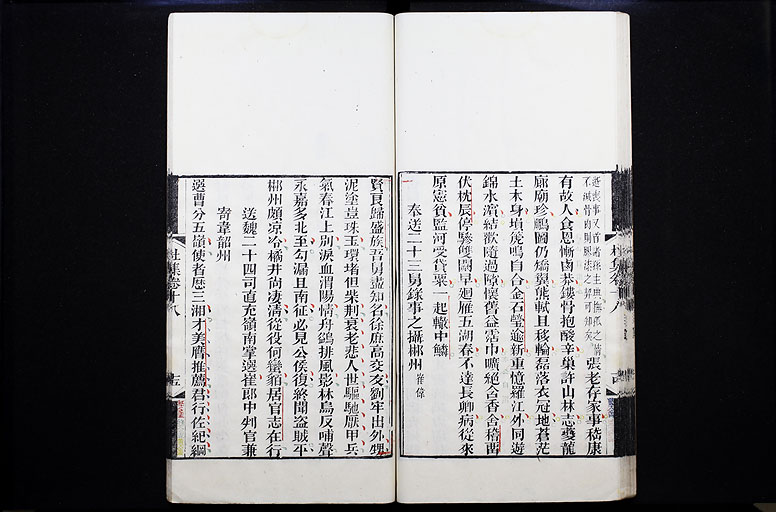 張老存家事嵇康
有故人食恩慚鹵莽鏤骨抱酸辛巢許山林志夔龍
廊廟珍鵬圖仍矯翼熊軾且移輪磊落衣冠地蒼茫
土木身塤篪鳴自合金石瑩逾新重憶羅江外同遊
錦水濱結歡隨過隙懷舊益霑巾曠絕含香舍稽留
伏枕辰停驂雙闕早廻雁五湖春不達長卿病從來
原憲貧監河受貸粟一起轍中鱗
奉送二十三舅錄事之攝郴州
賢良歸盛族吾舅盡知名徐庶高交友劉牢出外甥
泥塗豈珠玉環堵但柴荆衰老悲人世驅馳厭甲兵
氣春江上別淚血渭陽情舟鷁排風影林烏反哺聲
永嘉多北至勾漏且南征必見公侯復終聞盜賊平
郴州頗涼冷橘井尚淒清從役何蠻貊居官志在行
送魏二十四司直充嶺南掌選崔郎中判官兼
寄韋韶州
選曹分五嶺使者歷三湘才美膺推薦君行佐紀綱
杜集卷十八